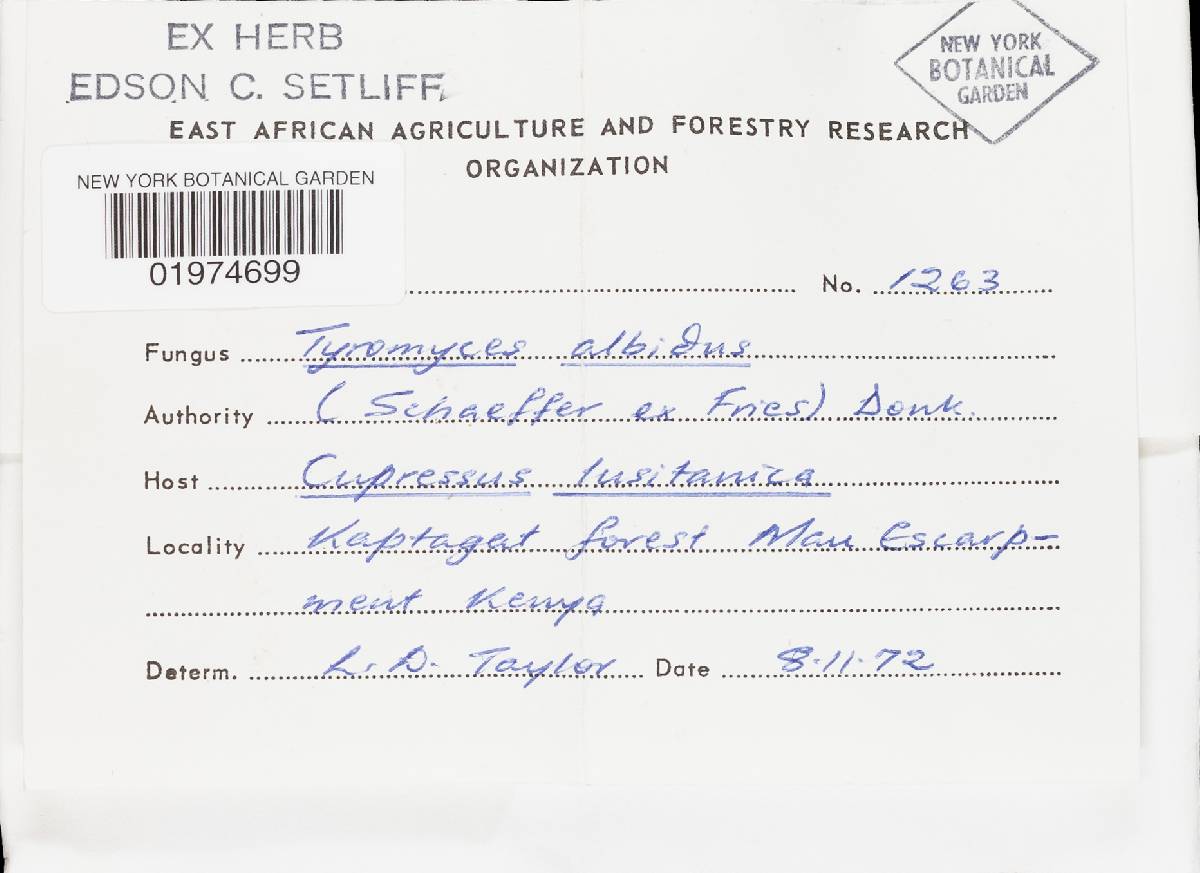 EX HERB
EDSON C. SETLIFF
NEW YORK
BOTANICAL
GARDEN
EAST AFRICAN AGRICULTURE AND FORESTRY RESEARCH
ORGANIZATION
NEW YORK BOTANICAL GARDEN
01974699
No. 1263
Fungus Tyromyces albidus
Authority (Schaeffer ex Fries) Donk.
Host Cupressus lusitanica
Locality Kaptagat forest Mau Escarp-
ment Kenya
Determ. L. D. Taylor Date 8.11.72